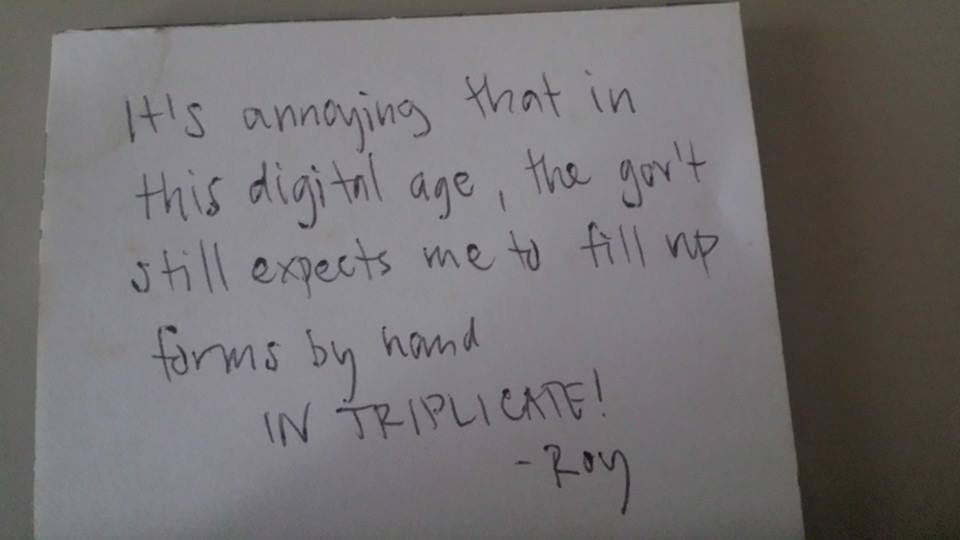 It's annoying that in
this digital age, the gov't
still expects me to fill up
forms by hand
IN TRIPLICATE!
-Roy